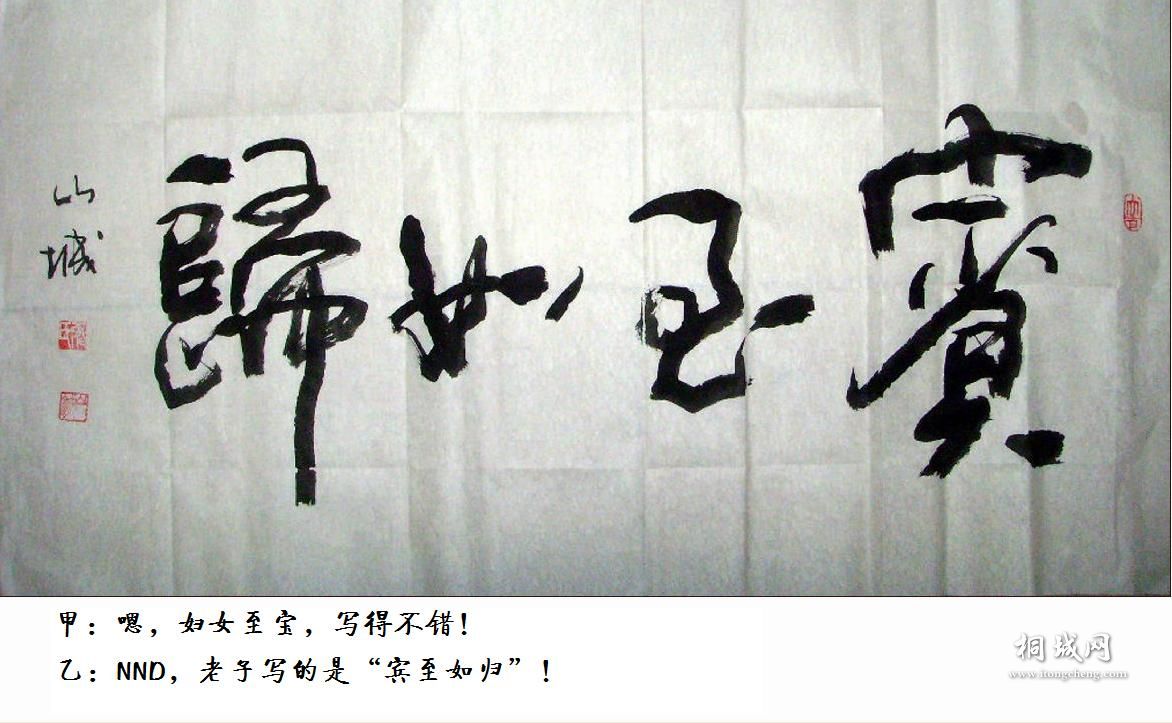 賓至如歸
山城
甲：嗯，妇女至宝，写得不错！
乙：NND，老子写的是“宾至如归”！
桐城网
www.itongcheng.com